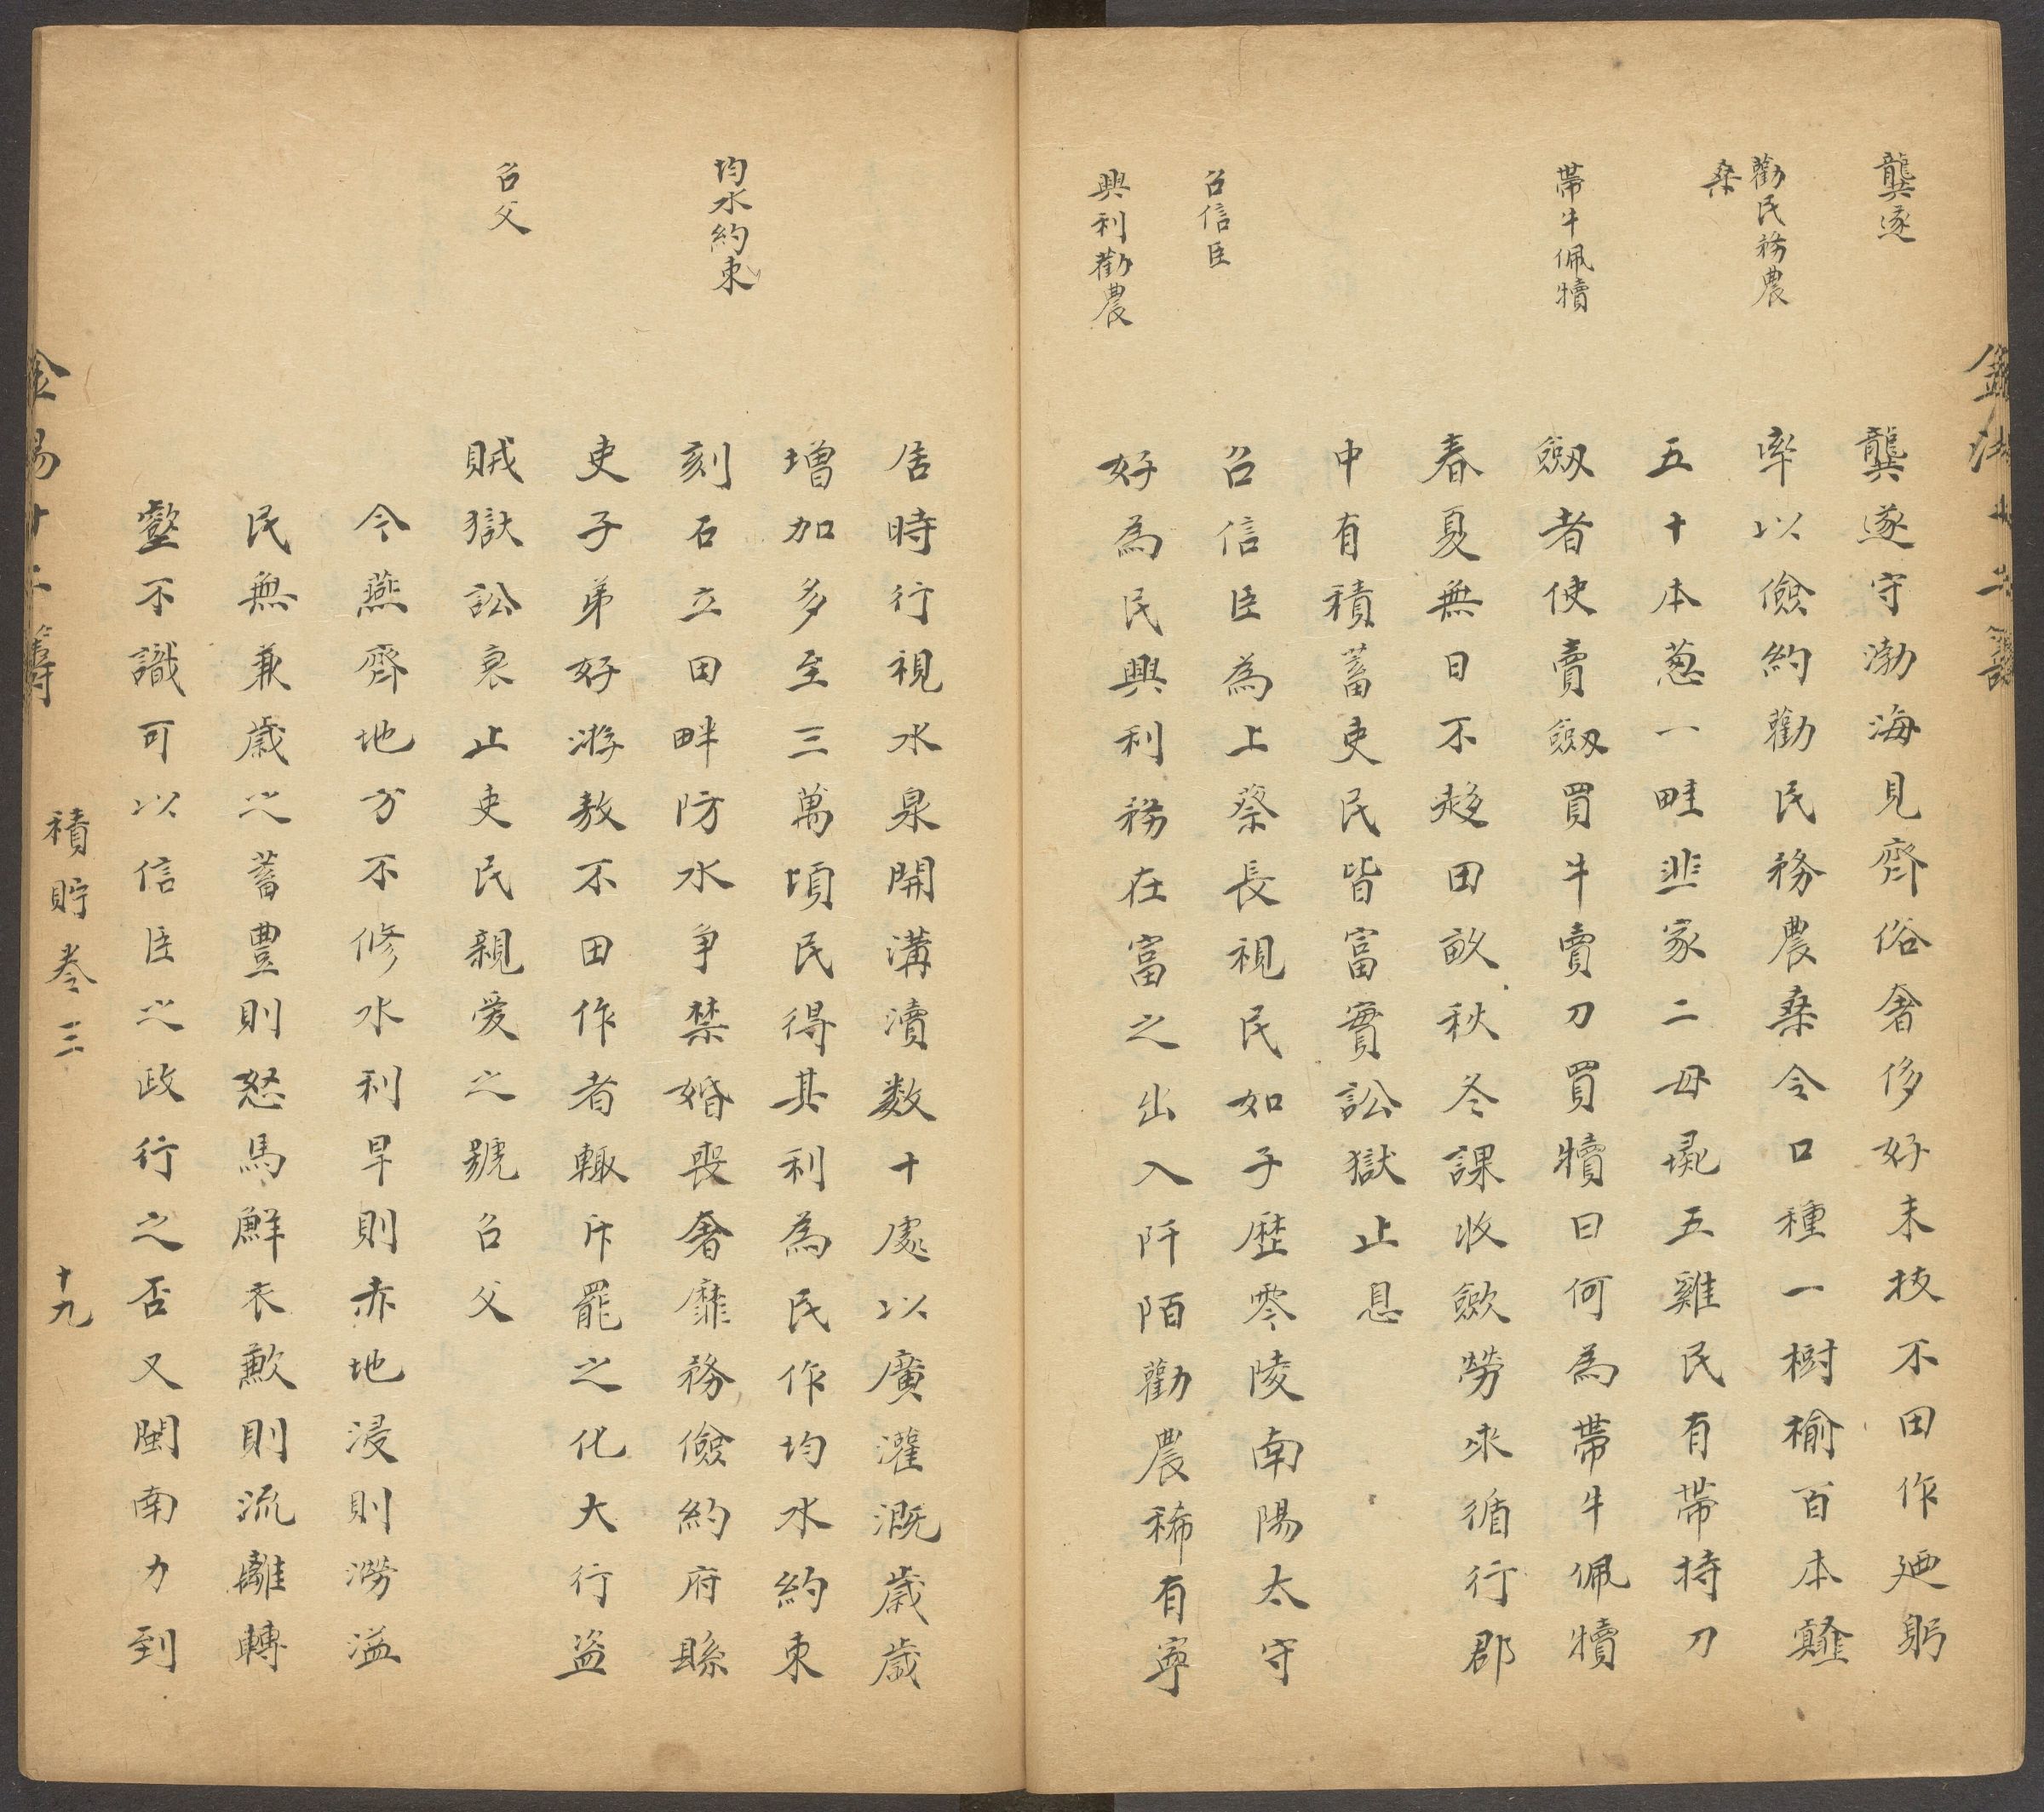 龔遂
勸民務農
桒
帶牛佩犢
召信臣
興利勸農
龔遂守渤海見齊俗奢侈好末技不田作廼躬
率以儉約勸民務農桒令口種一樹榆百本䪥
五十本葱一畦韭家二母彘五雞民有帶持刀
劔者使賣劔買牛賣刀買犢曰何為帶牛佩犢
春夏無日不趍田畝秋冬課收斂勞来循行郡
中有積蓄吏民皆富實訟獄止息
召信臣為上蔡長視民如子歷零陵南陽太守
好為民興利務在富之出入阡陌勸農稀有寜
均水約束
召父
居時行視水泉開溝瀆数十處以廣灌溉歲歲
增加多至三萬頃民得其利為民作均水約束
刻石立田畔防水争禁婚喪奢靡務儉約府縣
吏子弟好游敖不田作者輒斥罷之化大行盜
賊獄訟衰止吏民親愛之號召父
今燕齊地方不修水利旱則赤地浸則澇溢
民無兼歲之蓄豐則怒馬鮮衣歉則流離轉
壑不識可以信臣之政行之否又閩南力到
積貯卷三
十九